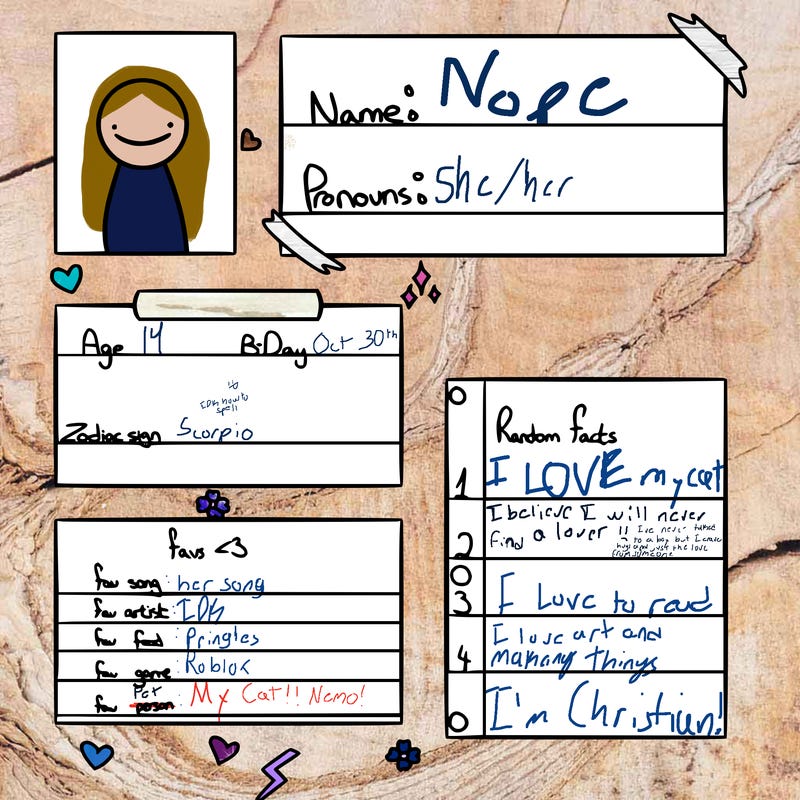 Name: Nope
Pronouns: She/her
Age 14 B-Day Oct 30th
IDK how to
spell
Zodiac sign Scorpio
favs <3
fav song: her song
fav artist: IDK
fav food: Pringles
fav game: Roblox
Pet
fav person: My Cat!! Nemo!
Random facts
1 I LOVE my cat
2 I believe I will never
find a lover !! I've never talked
to a boy but I crave
hugs and just the love
from someone
3 I Love to read
4 I love art and
makang things
I'm Christian!